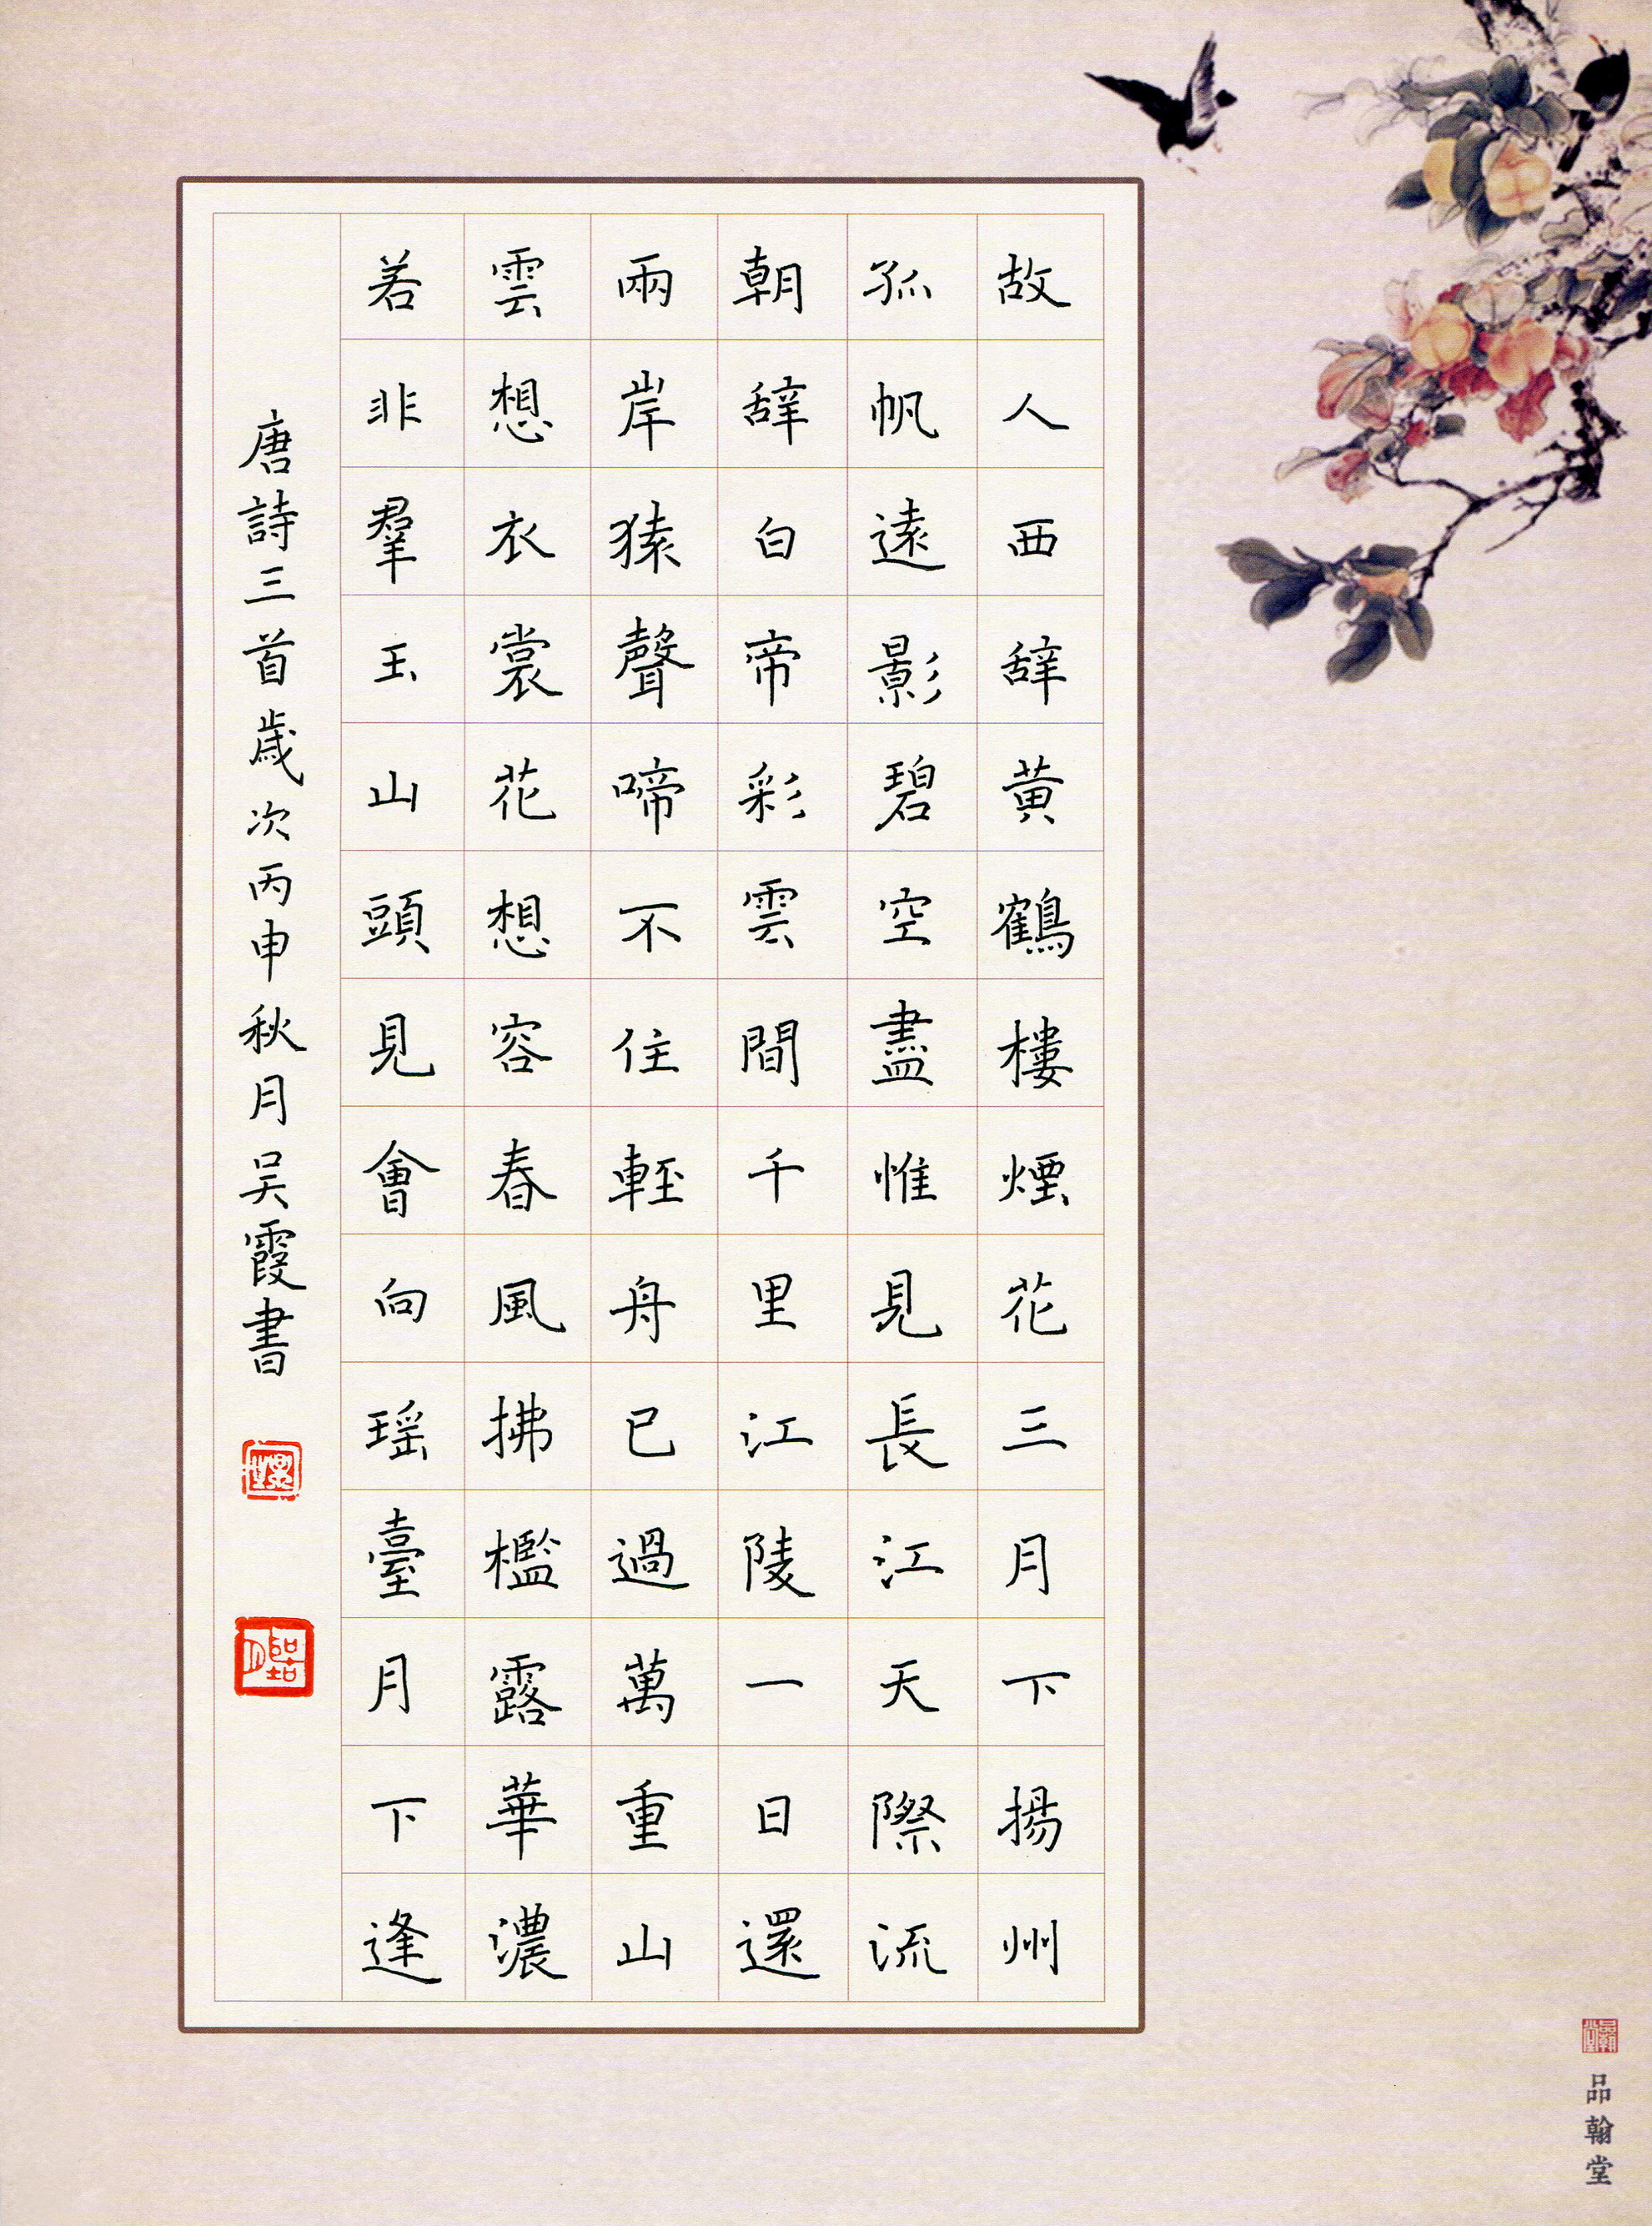 故人西辞黄鶴樓煙花三月下揚州
孤帆遠影碧空盡惟見長江天際流
朝辞白帝彩雲間千里江陵一日還
兩岸猿聲啼不住輕舟已過萬重山
雲想衣裳花想容春風拂檻露華濃
若非羣玉山頭見會向瑶臺月下逢
唐詩三首歲次丙申秋月吴霞書
品翰堂